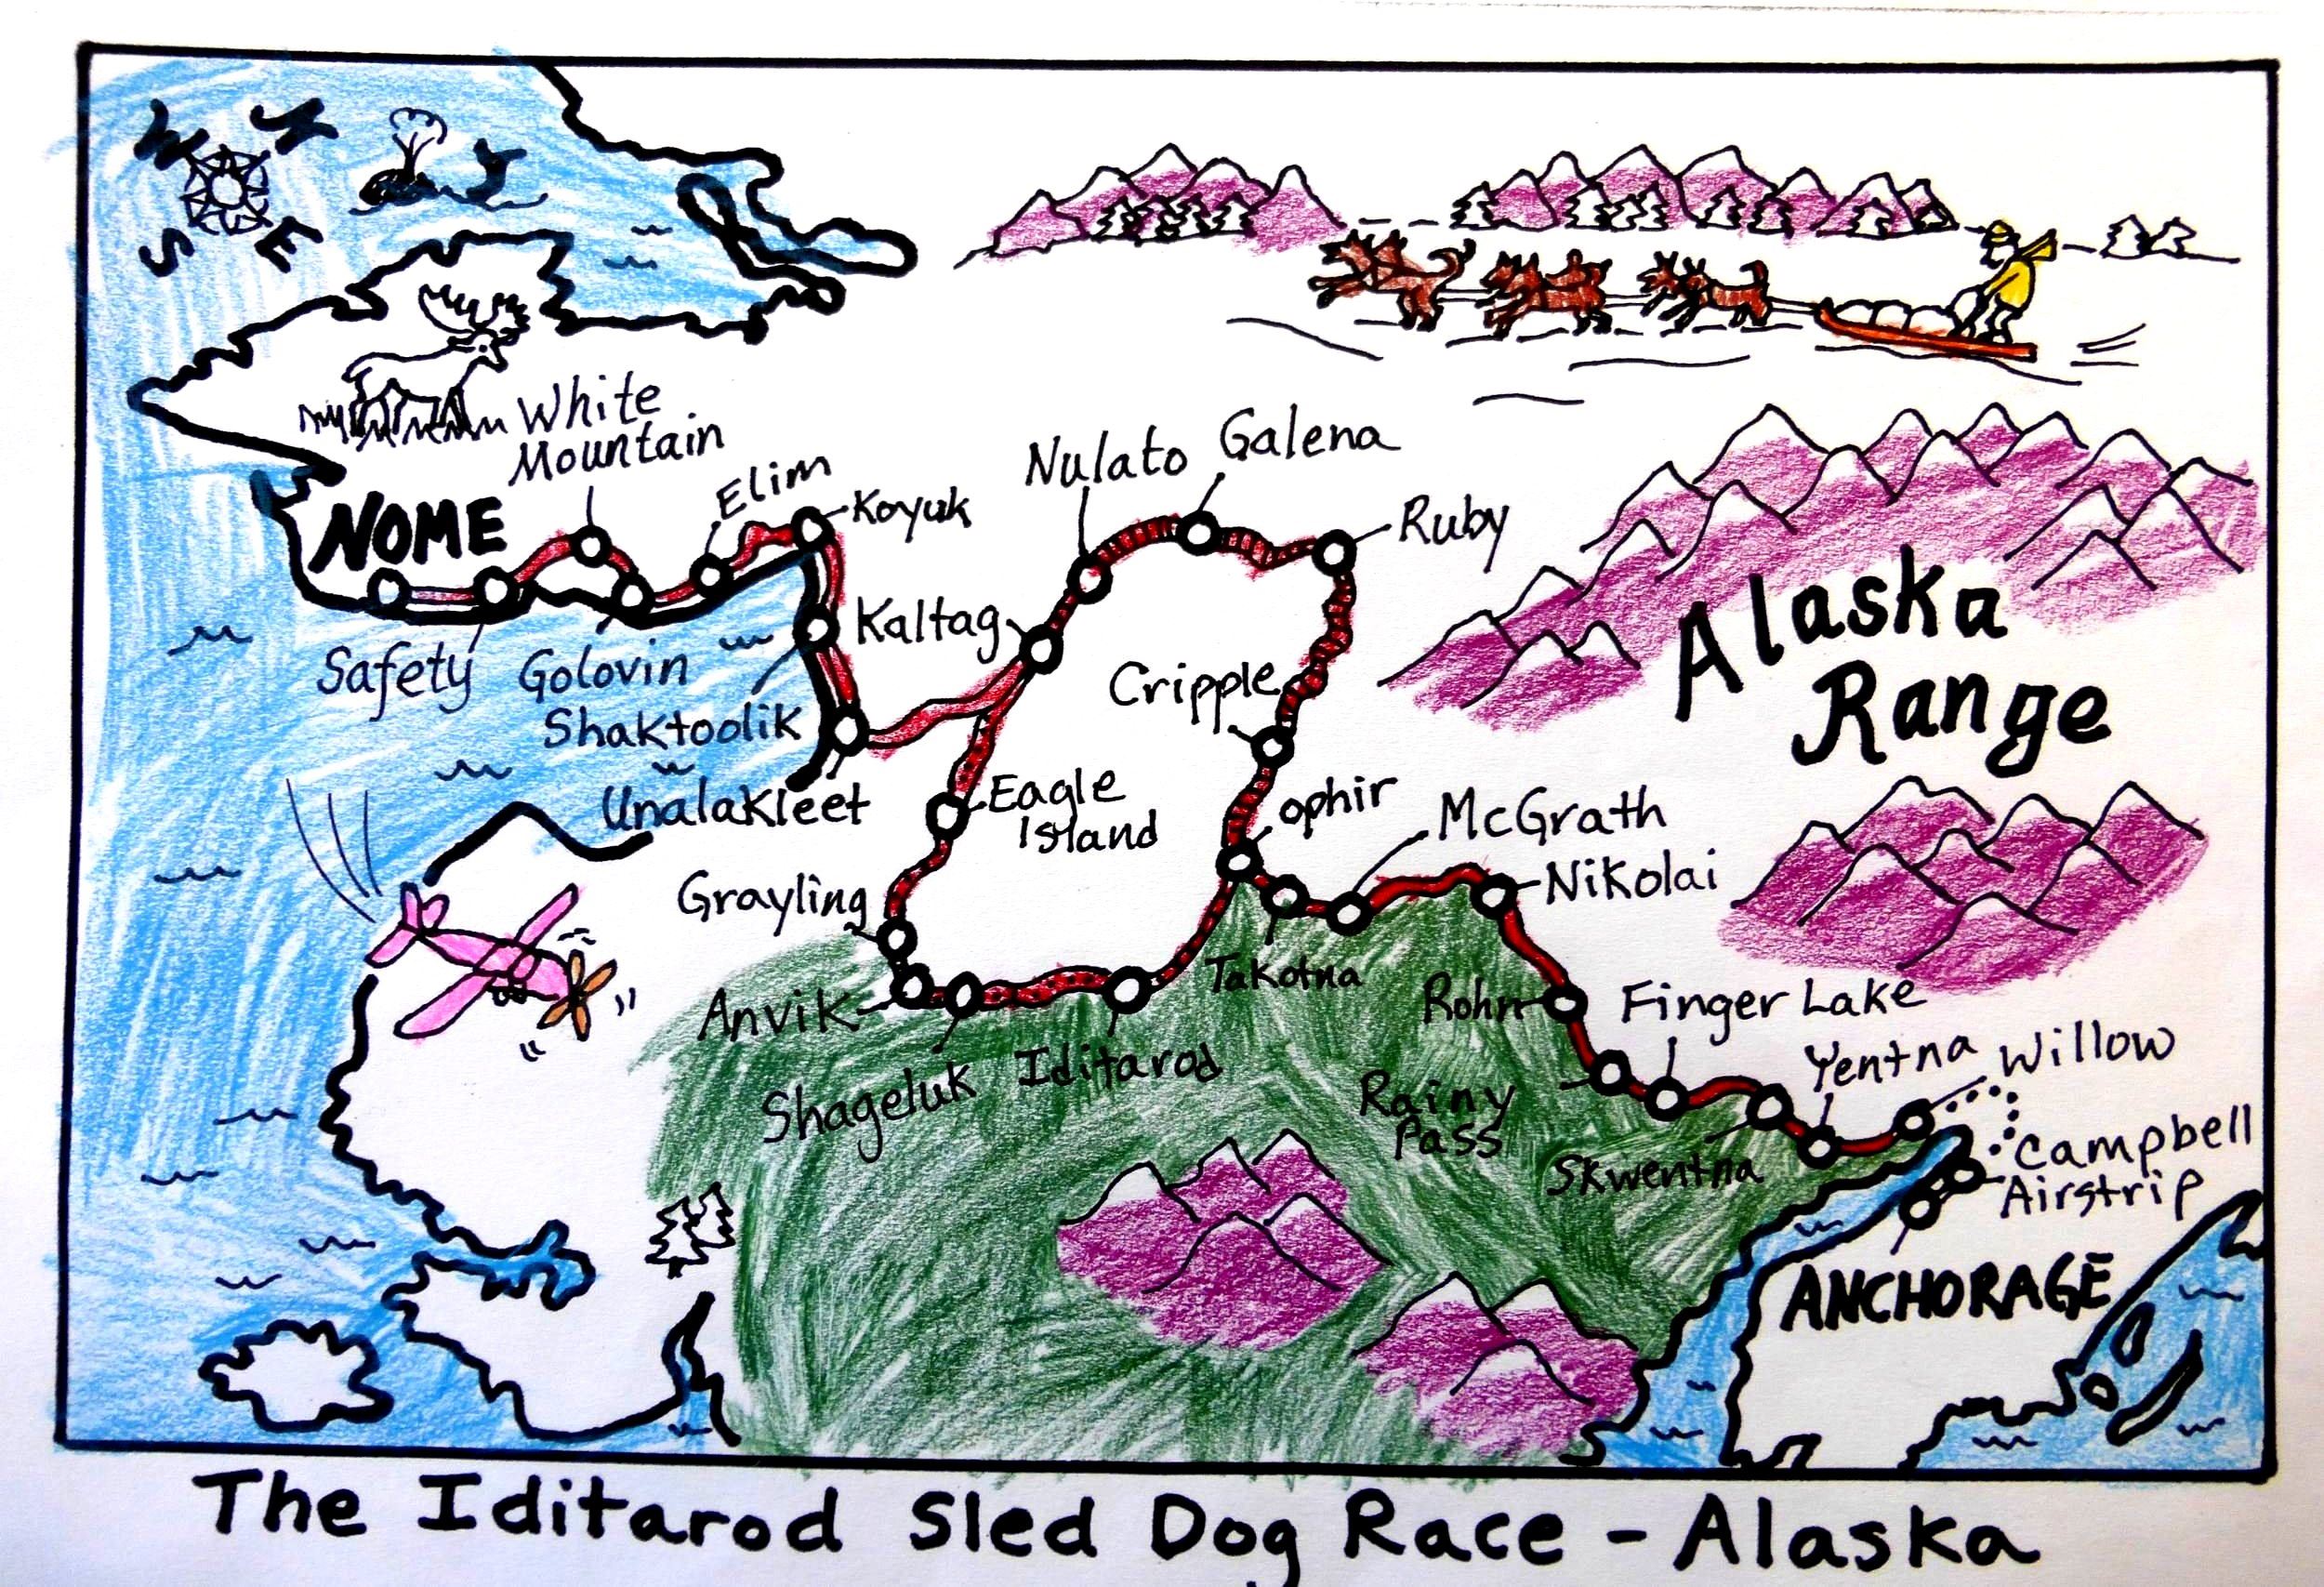 N
W
E
S
White
Mountain
Elim
Koyuk
NOME
Safety
Golovin
Shaktoolik
Unalakleet
Nulato
Galena
Ruby
Kaltag
Cripple
Eagle
Island
ophir
McGrath
Nikolai
Grayling
Anvik
Shageluk
Iditarod
Takotna
Rohn
Finger Lake
Rainy
Pass
Yentna
Willow
Skwentna
Campbell
Airstrip
ANCHORAGE
Alaska
Range
The Iditarod Sled Dog Race - Alaska